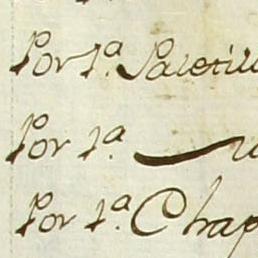 Por 1ª Saletill
Por 1ª
Por 1ª Chap